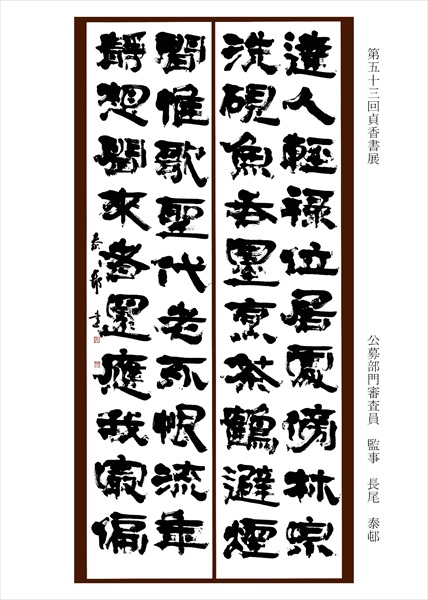 第五十三回貞香書展
公募部門審査員　監事　長尾　泰邨
達人輕祿位居處傍林泉
洗硯魚吞墨烹茶鶴避煙
閒惟歌聖代老不恨流年
靜想閒來者還應我最偏
泰邨書